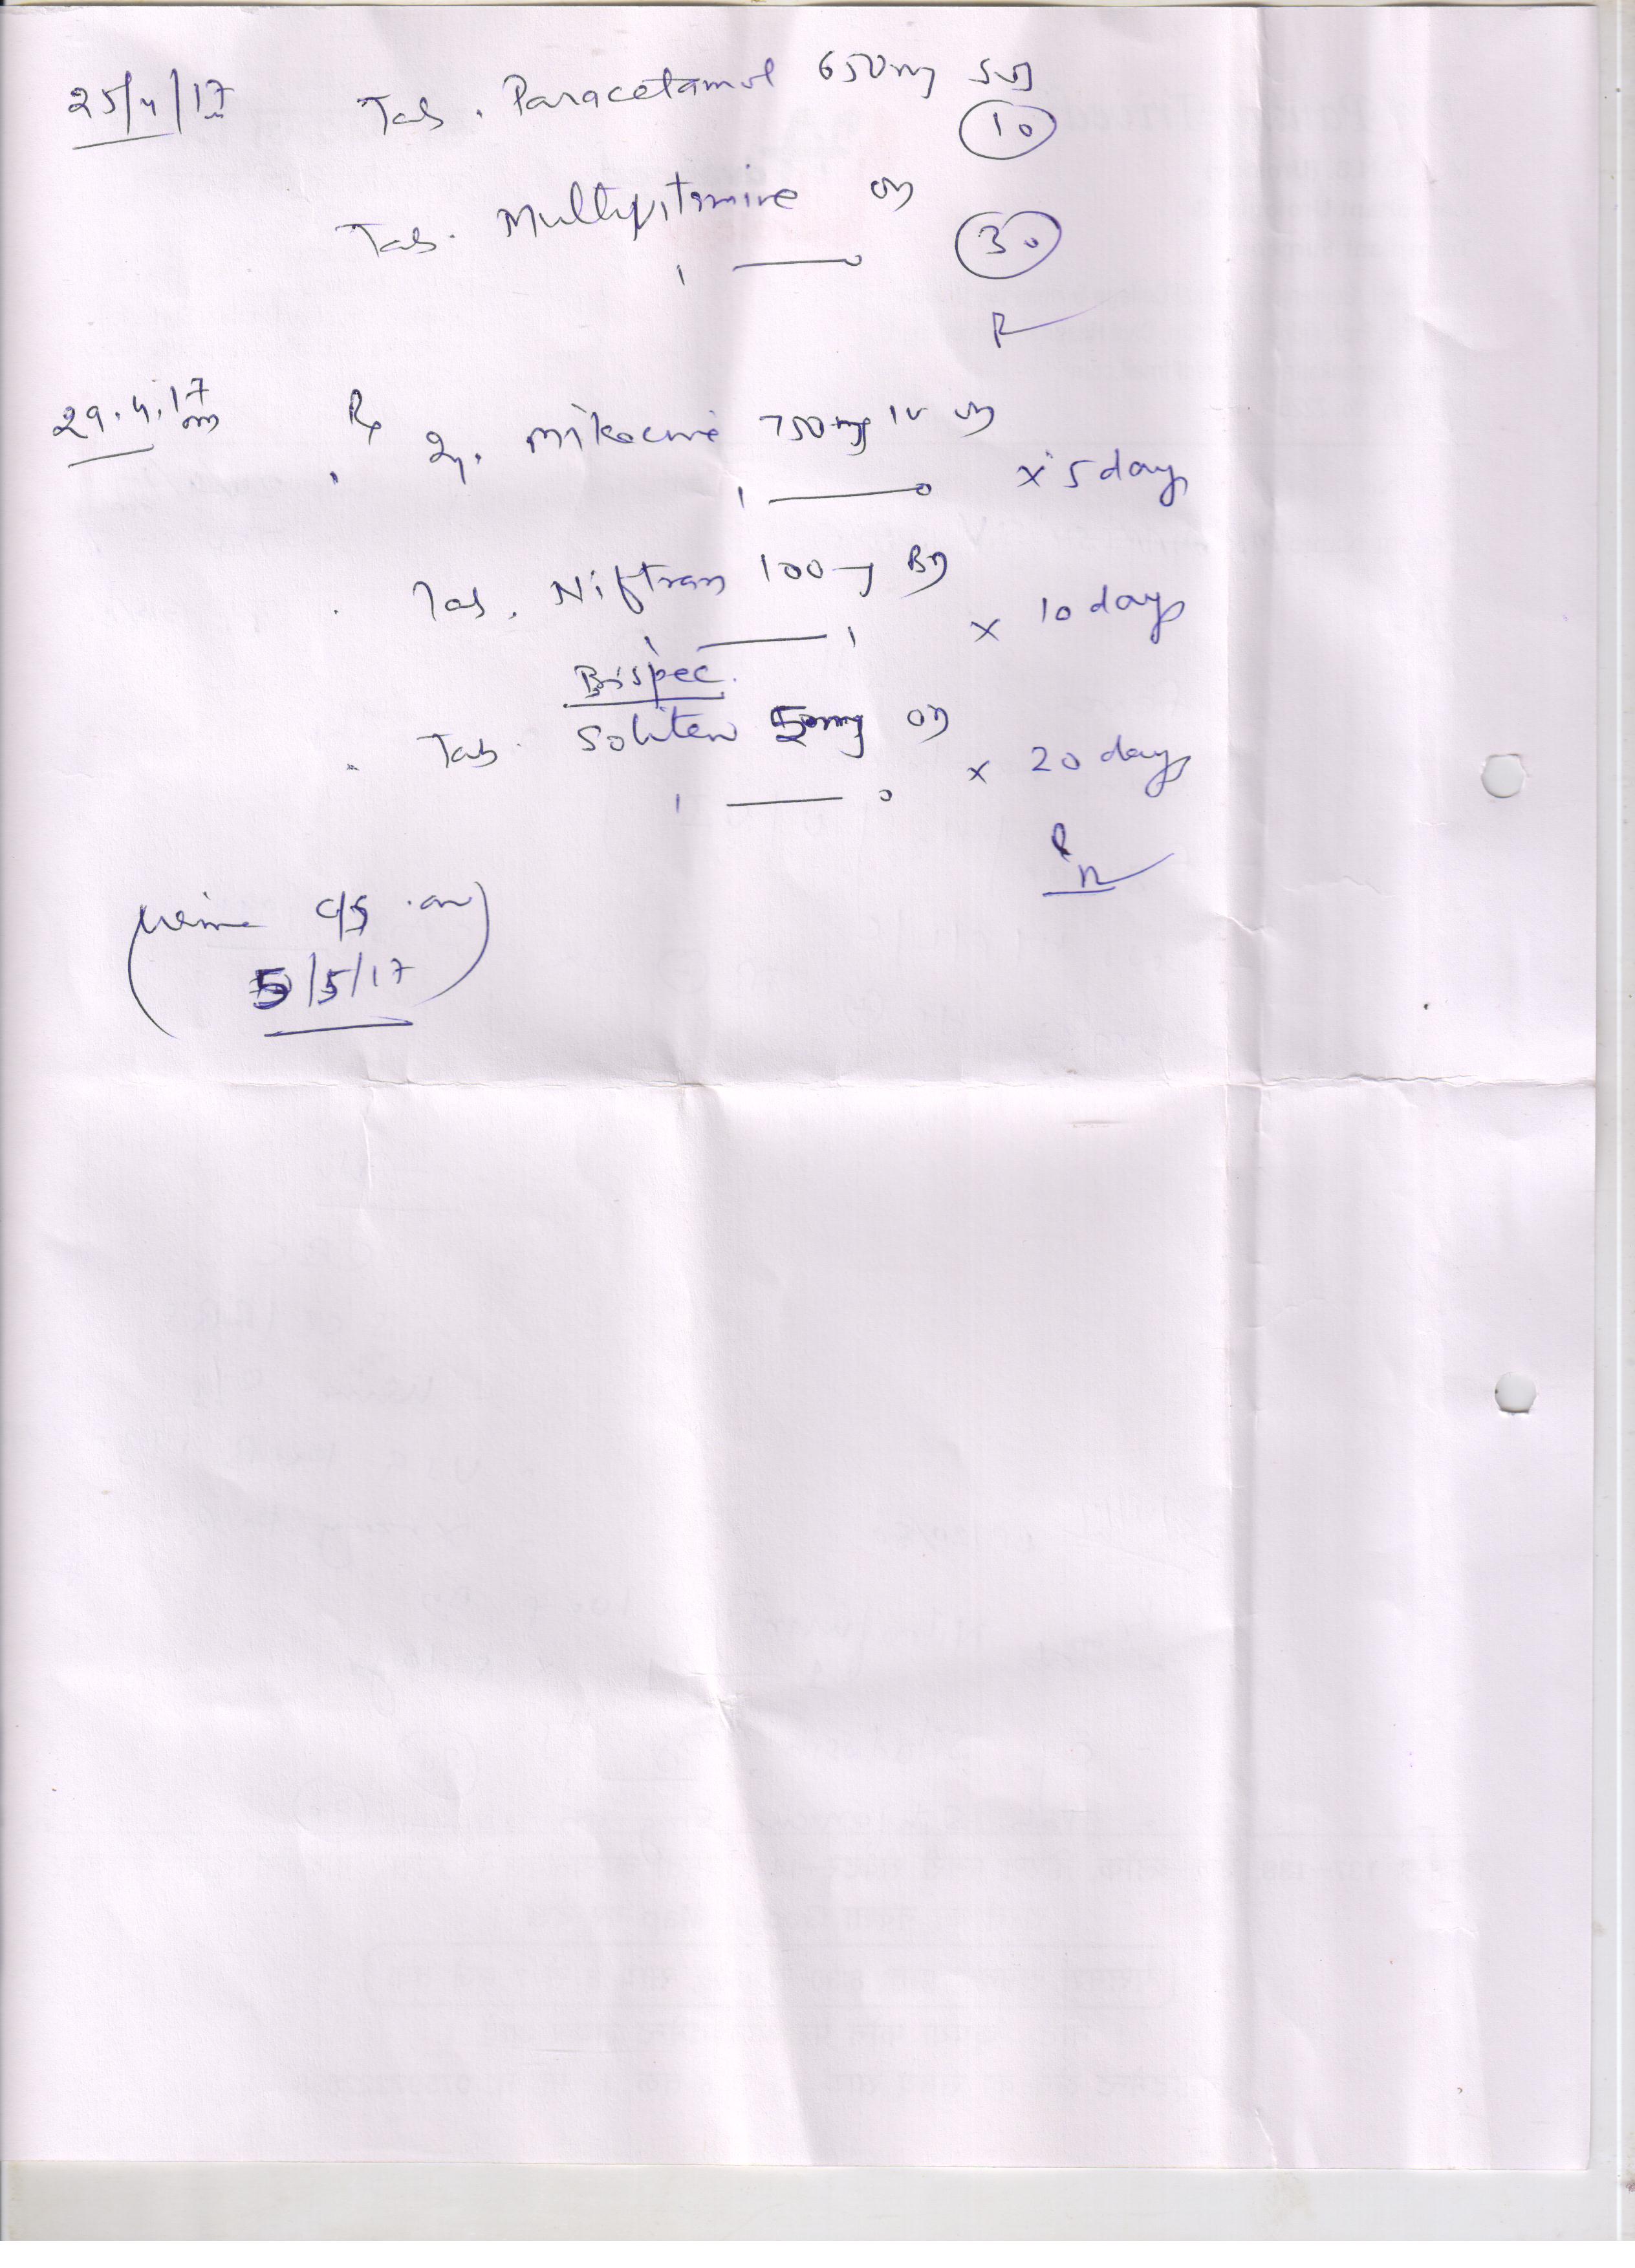 25/4/17 Tab. Paracetamol 650mg SOS
10
Tab. Multivitamine OD
1 — 0 30
29.4.17
Rx Inj. Mikacine 750mg IV OD
1 — 0 x 5 days
Tab. Niftran 100mg BD
1 — 1 x 10 days
Bispec
Tab. Soliten 5mg OD
1 — 0 x 20 days
(Urine C/S on
5/5/17)